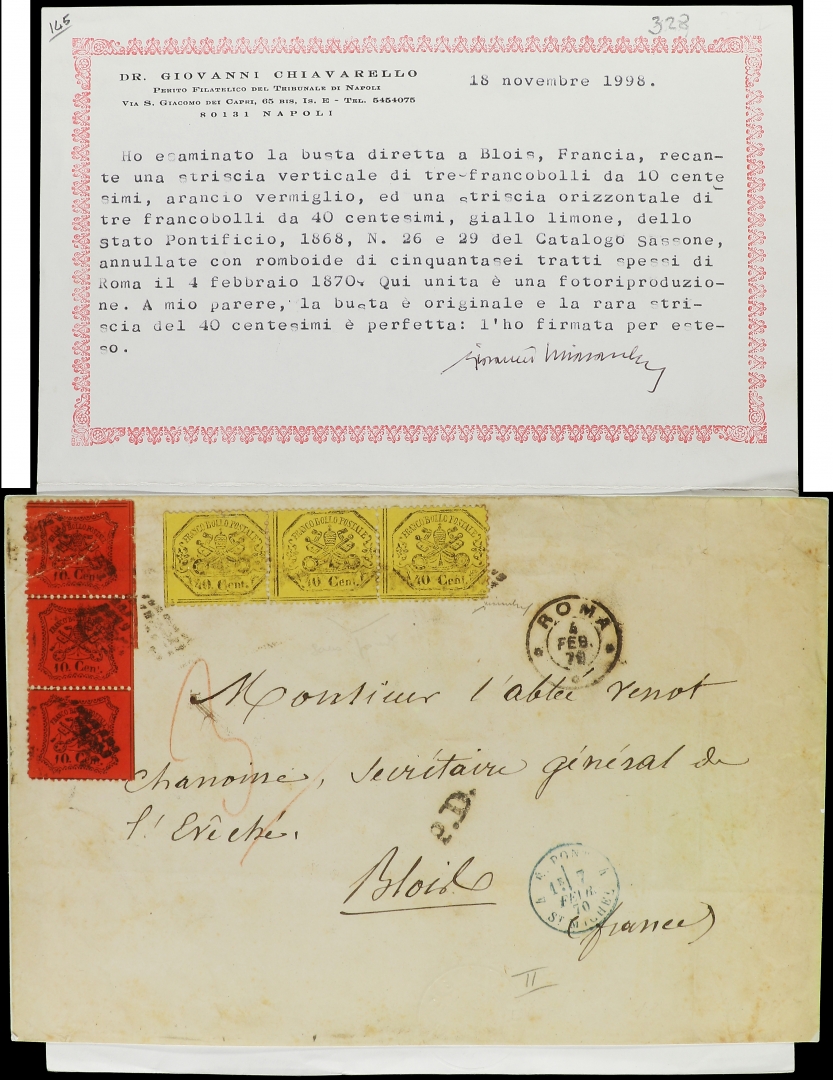 145
328
DR. GIOVANNI CHIAVARELLO
PERITO FILATELICO DEL TRIBUNALE DI NAPOLI
VIA S. GIACOMO DEI CAPRI, 65 BIS, IS. E - TEL. 5454075
80131 NAPOLI
18 novembre 1998.
Ho esaminato la busta diretta a Blois, Francia, recan-
te una striscia verticale di tre francobolli da 10 cente
simi, arancio vermiglio, ed una striscia orizzontale di
tre francobolli da 40 centesimi, giallo limone, dello
Stato Pontificio, 1868, N. 26 e 29 del Catalogo Sassone,
annullate con romboide di cinquantasei tratti spessi di
Roma il 4 febbraio 1870. Qui unita è una fotoriproduzio-
ne. A mio parere, la busta è originale e la rara stri-
scia del 40 centesimi è perfetta: l'ho firmata per este-
so.
FRANCO BOLLO POSTALE FRANCO BOLLO POSTALE FRANCO BOLLO POSTALE
40 Cent. 40 Cent. 40 Cent.
10 Cent.
10 Cent.
10 Cent.
ROMA
4
FEB.
70
Monsieur l'abbé Venot
Chanoine, Secrétaire général de
l'Evêché.
P.D.
Blois
7
FEVR
70
ST MICHEL
(france)
II